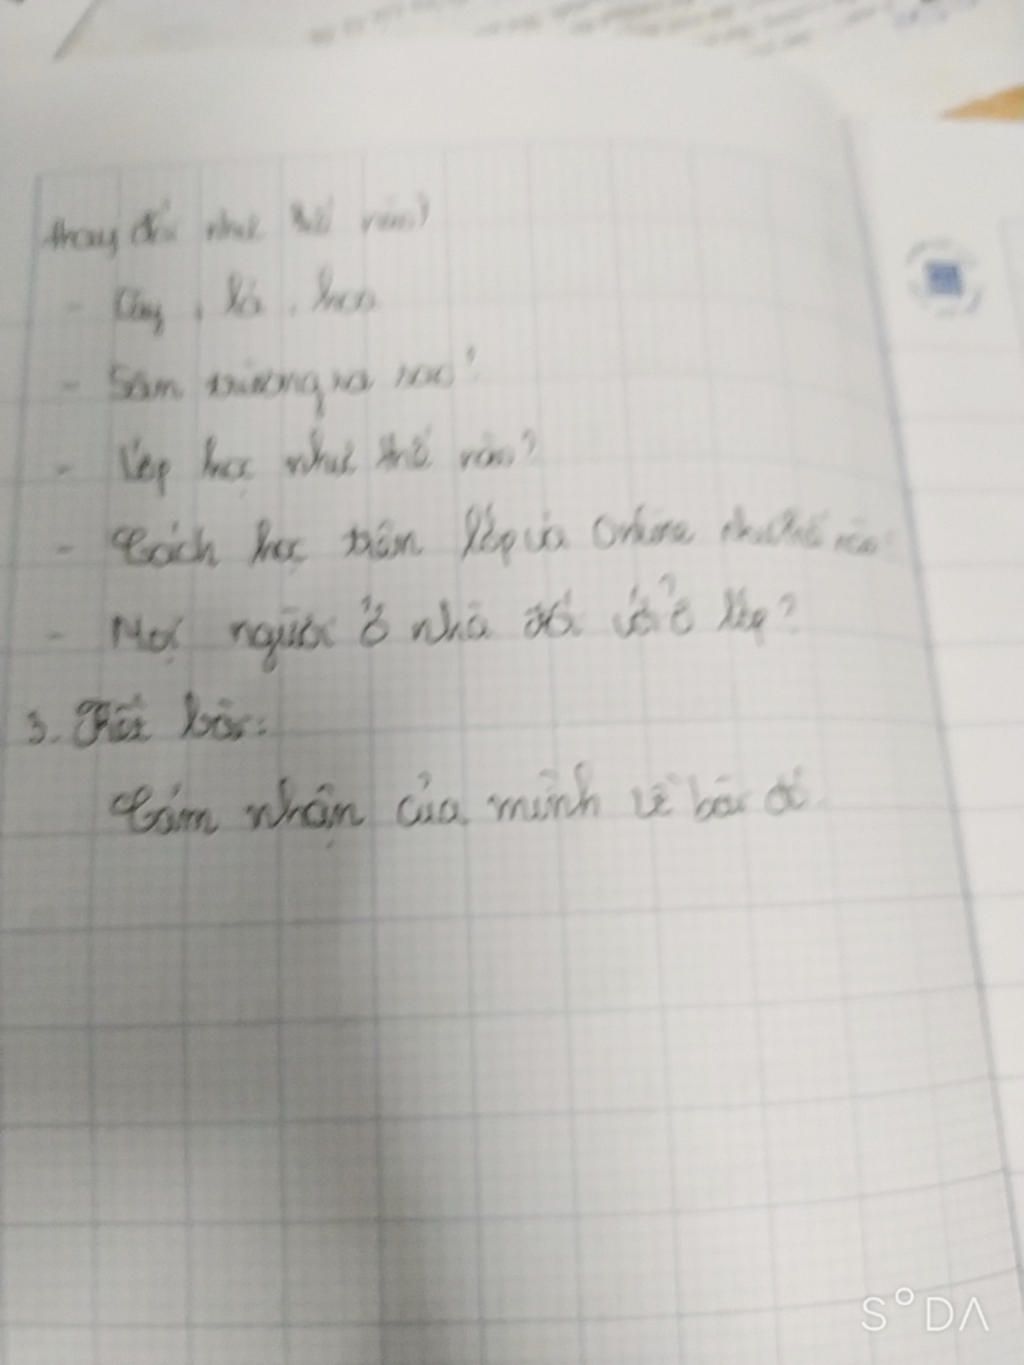 thay đổi như thế nào?
- Cây, lá, hoa
- Sân trường ra sao?
- Lớp học như thế nào?
- Cách học trên lớp và Online như thế nào
- Mọi người ở nhà đối với ở lớp?
3. Kết bài:
Cảm nhận của mình về bài đó
S°DA